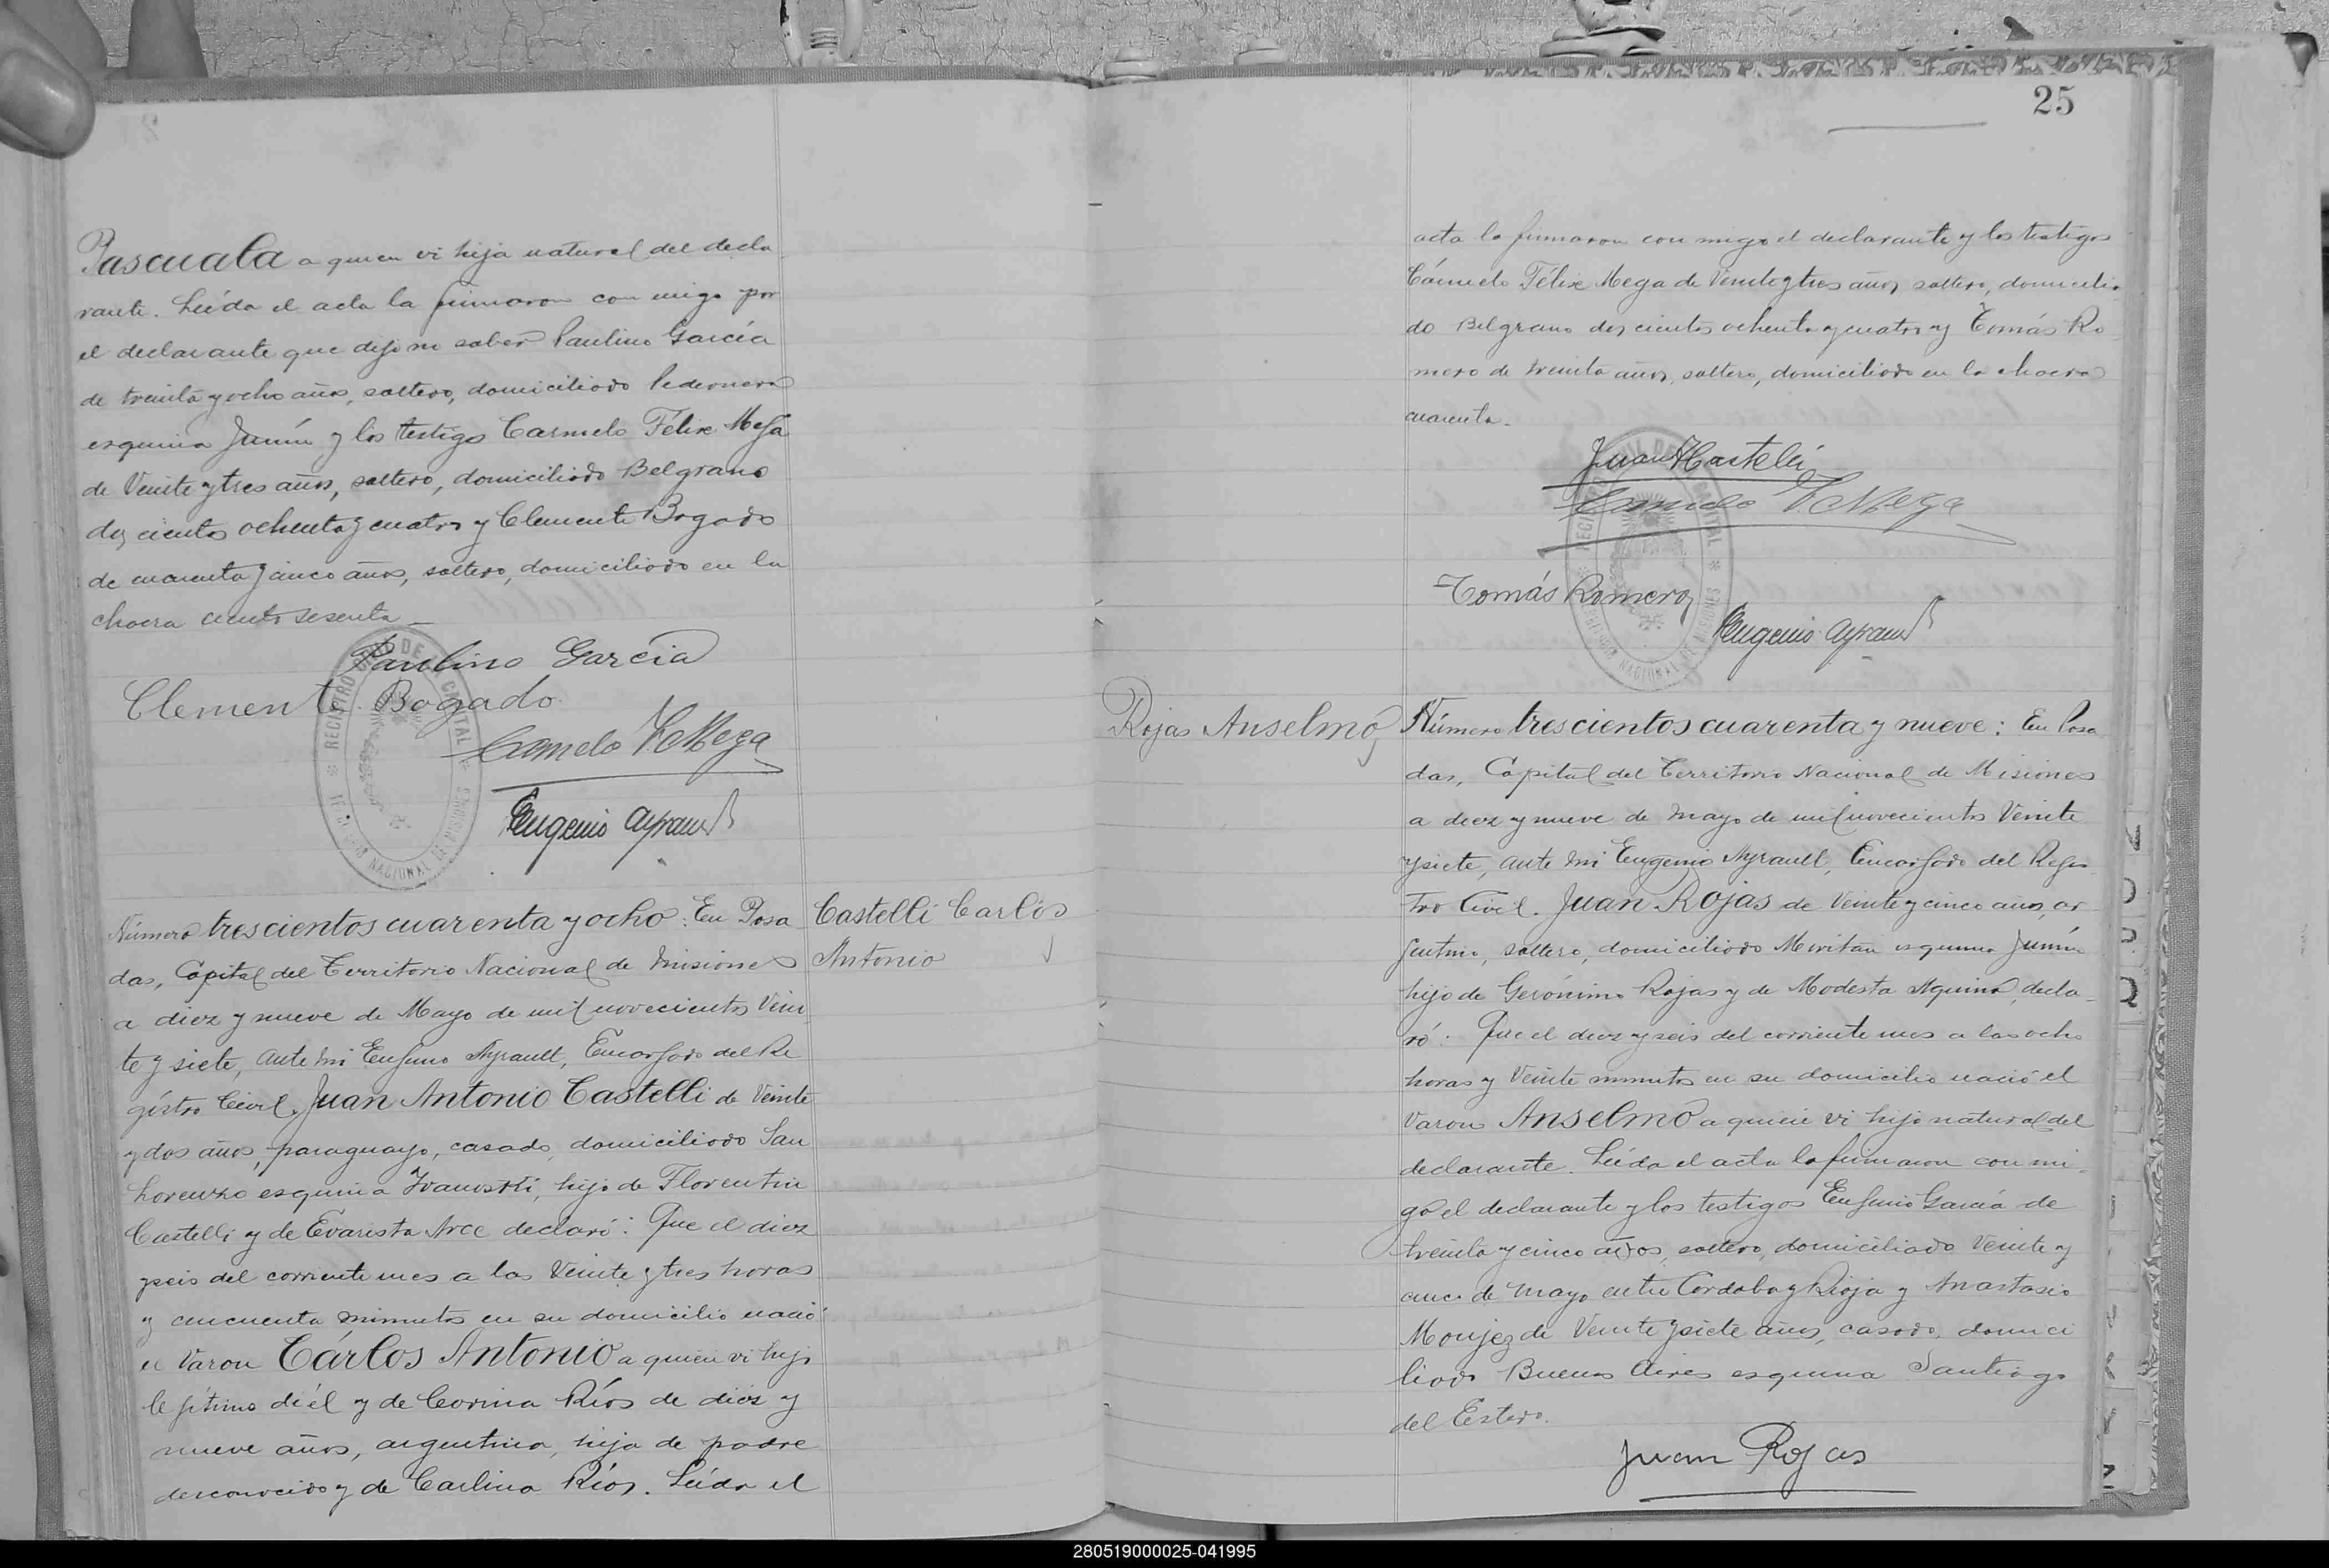 Pascuala a quien vi hija natural del decla
rante. Leída el acta la firmaron con migo por
el declarante que dijo no saber Paulino García
de treinta y ocho años, soltero, domiciliado Pedernera
esquina Junín y los testigo Carmelo Félix Mega
de Veinte y tres años, soltero, domiciliado Belgrano
dos cientos ochenta y cuatro y Clemente Bogado
de cuarenta y cinco años, soltero, domiciliado en la
chacra ciento sesenta
Paulino García
Clemente Bogado
Carmelo F. Mega
Eugenio Ayrault
REGISTRO CIVIL DE LA CAPITAL
TERRITORIO NACIONAL DE MISIONES
Número trescientos cuarenta y ocho: En Posa
das, Capital del Territorio Nacional de Misiones
a diez y nueve de Mayo de mil novecientos Vein
te y siete, ante mi Eugenio Ayrault, Encargado del Re
gistro Civil, Juan Antonio Castelli de Veinte
y dos años, paraguayo, casado, domiciliado San
Lorenzo esquina Ivanoski, hijo de Florentin
Castelli y de Evarista Arce declaró: Que el diez
y seis del corriente mes a las Veinte y tres horas
y cincuenta minutos en su domicilio nació
el Varon Cárlos Antonio a quien vi hijo
legítimo di él y de Corina Ríos de diez y
nueve años, argentina, hija de padre
desconocido y de Carlina Ríos. Leída el
Castelli Carlos
Antonio
25
acta la firmaron con migo el declarante y los testigos
Cármelo Félix Mega de Veinte y tres años, soltero, domicilia
do Belgrano dos cientos ochenta y cuatro y Tomás Ro
mero de treinta años, soltero, domiciliado en la chacra
cuarenta.
Juan A Castelli
Carmelo F. Mega
Tomás Romero
Eugenio Ayrault
REGISTRO CIVIL DE LA CAPITAL
TERRITORIO NACIONAL DE MISIONES
Rojas Anselmo
Número trescientos cuarenta y nueve: En Posa
das, Capital del Territorio Nacional de Misiones
a diez y nueve de Mayo de mil novecientos Veinte
y siete, ante mi Eugenio Ayrault, Encargado del Regis
tro Civil. Juan Rojas de Veinte y cinco años, ar
gentino, soltero, domiciliado esquina Junín
hijo de Gerónimo Rojas y de Modesta Aquino, decla-
ró: Que el diez y seis del corriente mes a las ocho
horas y Veinte minutos en su domicilio nació el
Varon Anselmo a quien vi hijo natural del
declarante. Leída el acta la firmaron con mi-
go el declarante y los testigos Eugenio García de
treinta y cinco años, soltero, domiciliado Veinte y
cinco de Mayo entre Cordoba y Rioja y Anastasio
de Veinte y siete años, casado, domici
liado Buenos Aires esquina Santiago
del Estero.
Juan Rojas
280519000025-041995